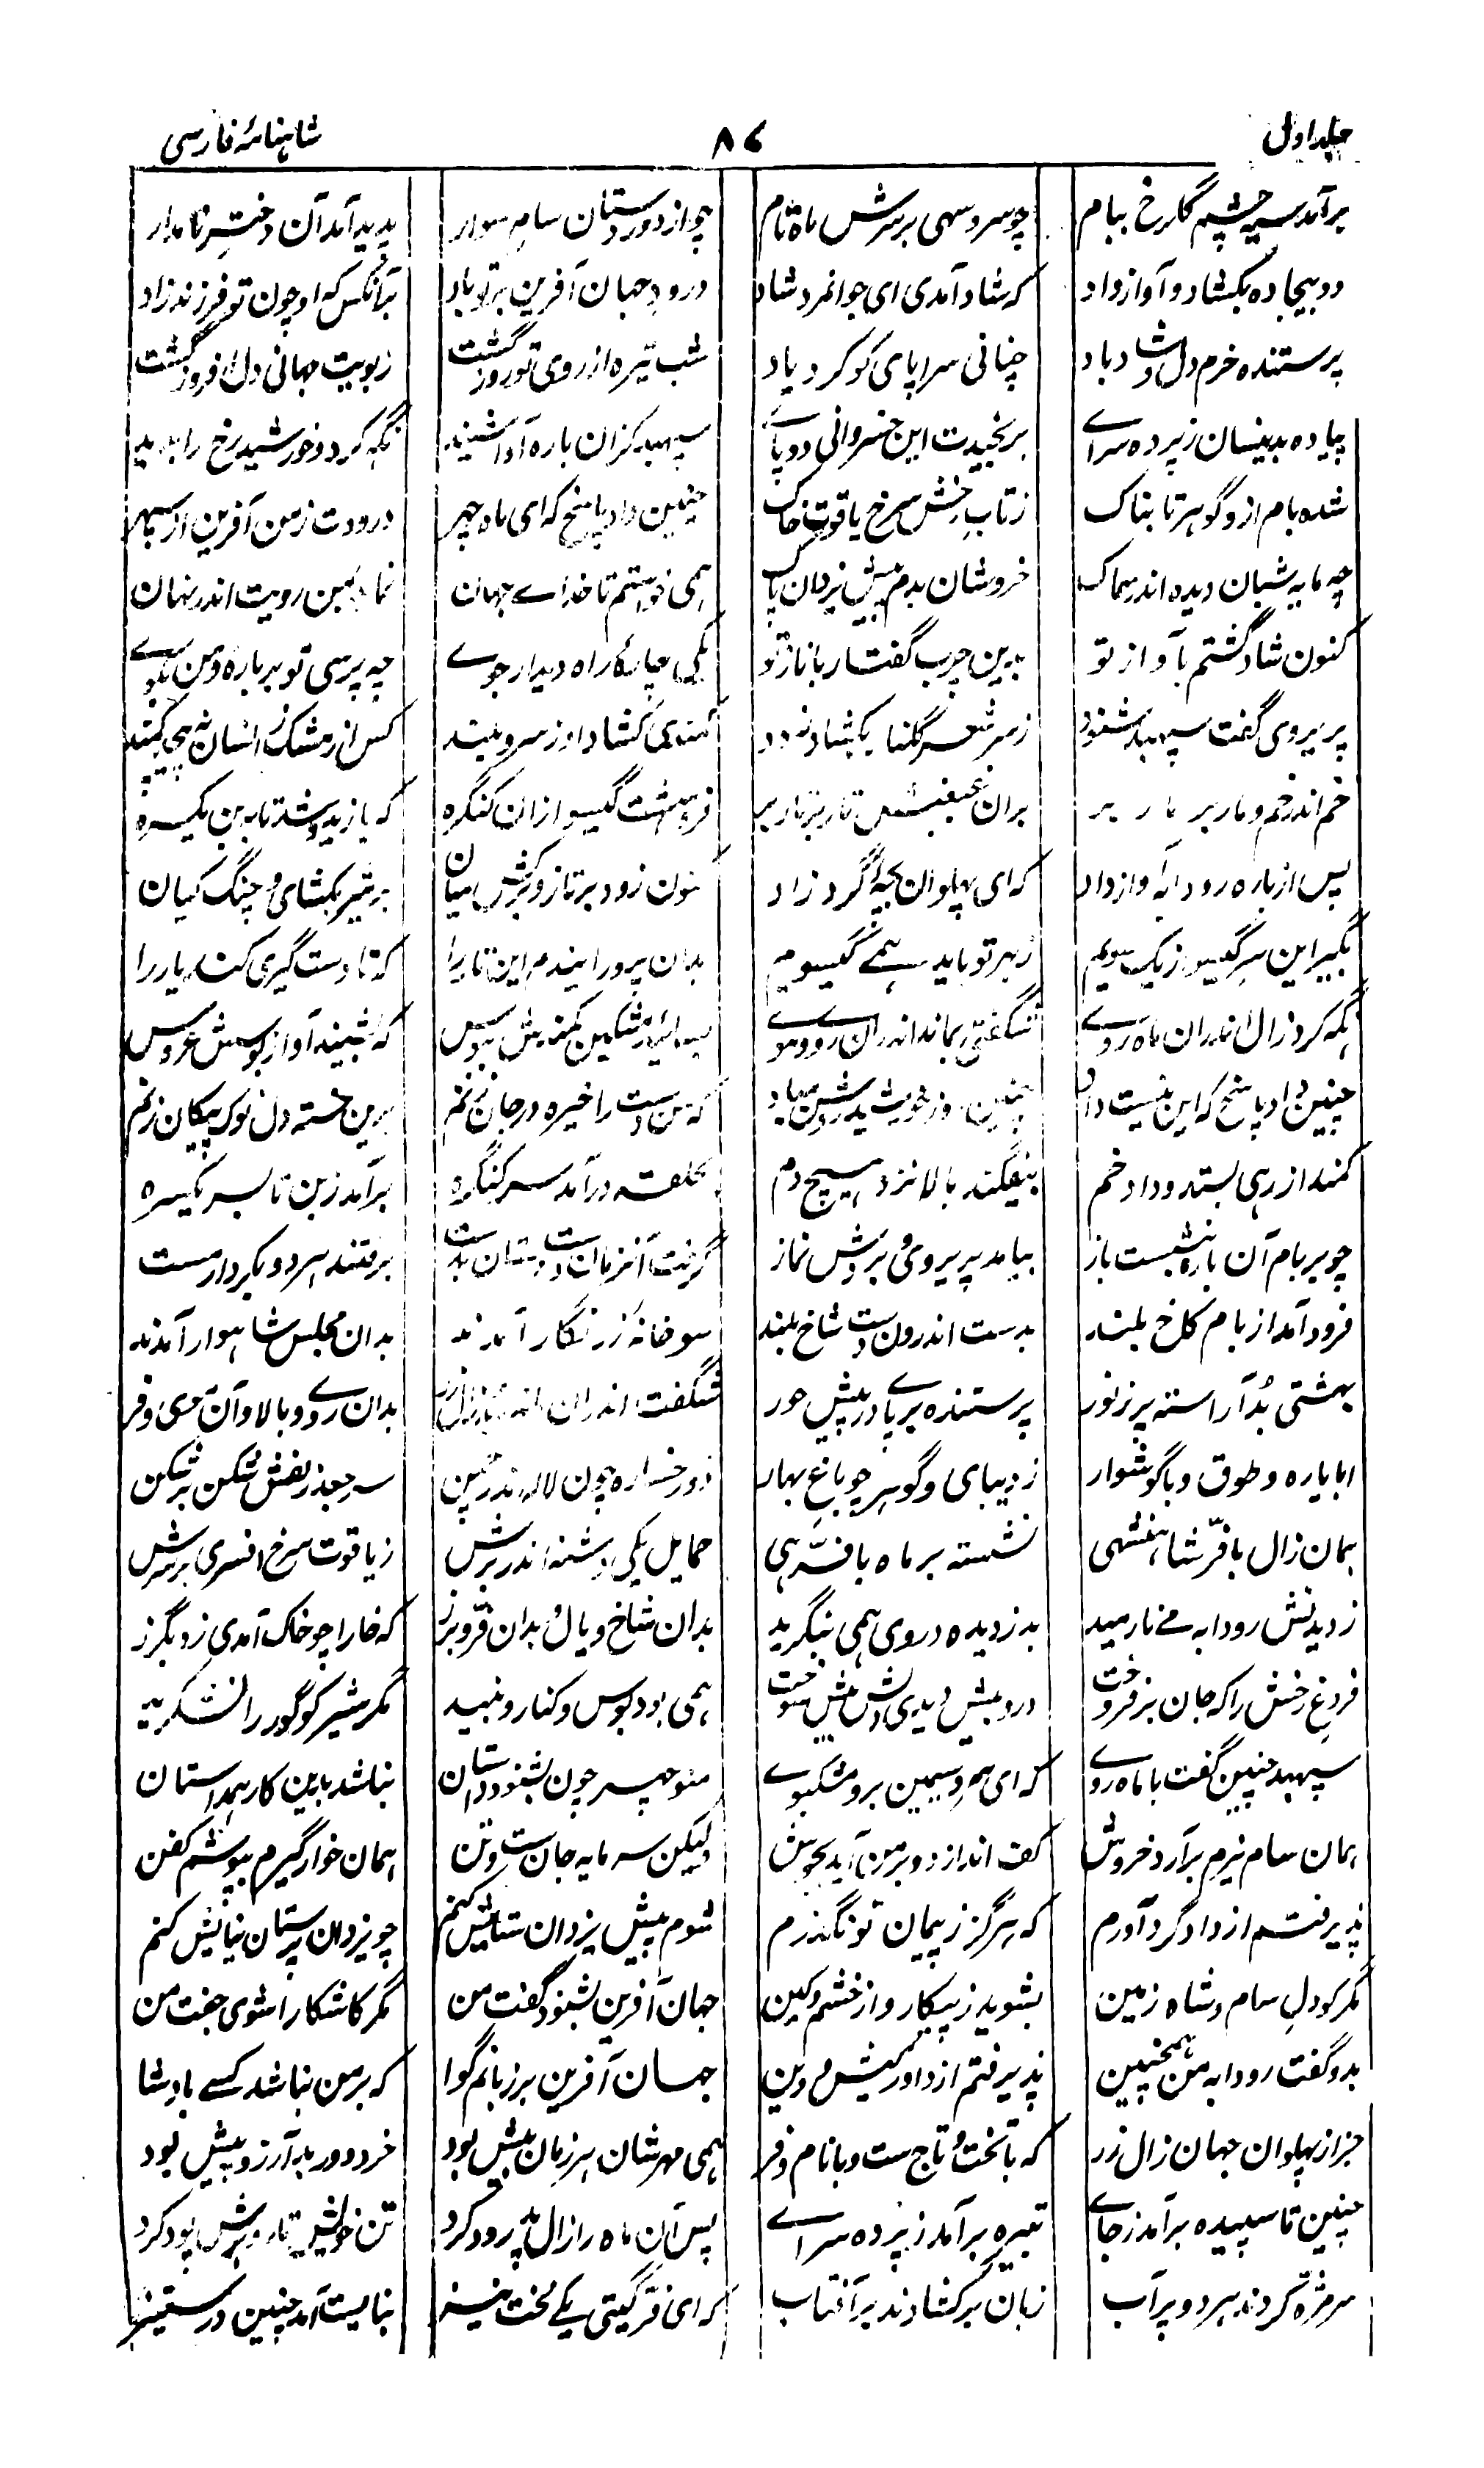 جلد اول ۸۷ شاهنامهٔ فارسی
برآمد سیه چشم گلرخ ببام چو سرو سهی بر سرش ماه تام چو از دور دستان سام سوار پدید آمد آن دختر نامدار
دو بیجاده بکشاد و آواز داد که شاد آمدی ای جوانمرد شاد درود جهان آفرین بر تو باد بر آنکس که او چون تو فرزند زاد
پرستنده خرم دل و شاد باد چنانی سراپای کو کرد یاد شب تیره از روی تو روز گشت ز بویت جهانی دل افروز گشت
پیاده بدینسان ز پرده سرای برنجیدت این خسروانی دو پای سپهبد کزان باره آوا شنید نگه کرد و خورشید رخ را بدید
شده بام ازو گوهر تابناک ز تاب رخش سرخ یاقوت خاک چنین داد پاسخ که ای ماه چهر درودت ز من آفرین از سپهر
چه مایه شبان دیده اندر سماک خروشان بدم پیش یزدان پاک همی خواستم تا خدای جهان نماید بمن رویت اندر نهان
کنون شاد گشتم بآواز تو بدین چرب گفتار با ناز تو یکی چاره راه دیدار جوی چه پرسی تو بر باره و من بکوی
پریروی گفت سپهبد شنود ز سر شعر گلنار بکشاد زود کمندی کشاد او ز سرو بلند کس از مشک زانسان نپیچد کمند
خم اندر خم و مار بر مار بر بران غبغبش تار بر تار بر فروهشت گیسو از ان کنگره که یازید و شد تا به بن یکسره
پس از باره رودابه آواز داد که ای پهلوان بچهٔ گرد زاد کنون زود بر تاز و برکش میان بر شیر بکشای و چنگ کیان
بگیر این سر گیسو از یک سویم ز بهر تو باید همی گیسویم بدان پرورانیدم این تار را که تا دستگیری کند یار را
نگه کرد زال اندران ماه روی شگفتی بماند اندران رو و موی بسائید مشکین کمندش ببوس که بشنید آواز بوسش عروس
چنین داد پاسخ که این نیست داد چنین روز خورشید روشن مباد که من دست را خیره در جان زنم برین خسته دل نوک پیکان زنم
کمند از رهی بستد و داد خم بیفکند بالا نزد هیچ دم بحلقه در آمد سر کنگره برآمد ز بن تا بسر یکسره
چو بر بام آن باره بنشست باز بیامد پریروی و بردش نماز گرفت آنزمان دست دستان بدست برفتند هر دو بکردار مست
فرود آمد از بام کاخ بلند بدست اندرون دست شاخ بلند سوی خانهٔ زرنگار آمدند بدان مجلس شاهوار آمدند
بهشتی بُد آراسته پر ز نور پرستنده بر پای در پیش حور شگفت اندران مانده بد زال زر بدان روی و بالا و آن موی و فر
ابا یاره و طوق و با گوشوار ز دیبای و گوهر چو باغ بهار دو رخساره چون لاله اندر چمن سر جعد زلفش شکن بر شکن
همان زال با فرّ شاهنشهی نشسته بر ماه با فرّهی حمایل یکی دشنه اندر برش ز یاقوت سرخ افسری بر سرش
ز دیدنش رودابه می نارمید بدزدیده در وی همی بنگرید بدان شاخ و یال و بدان فرّ و برز که خارا چو خاک آمدی زو بگرز
فروغ رخش را که جان برفروخت درو بیش دیدی دلش بیش سوخت همی بود بوس و کنار و نبید مگر شیر کو گور را نشکرید
سپهبد چنین گفت با ماه روی که ای سرو سیمین بر و مشکبوی منوچهر چون بشنود داستان نباشد باین کار همداستان
همان سام نیرم برآرد خروش کف اندازد و بر من آید بجوش ولیکن سر مایه جان ست و تن همان خوار گیرم بپوشم کفن
پذیرفتم از دادگر داورم که هرگز ز پیمان تو نگذرم شوم پیش یزدان ستایش کنم چو یزدان پرستان نیایش کنم
مگر کو دل سام و شاه زمین بشوید ز پیکار و از خشم و کین جهان آفرین بشنود گفت من مگر کاشکارا شوی جفت من
بدو گفت رودابه من همچنین پذیرفتم از داور کیش و دین جهان آفرین بر زبانم گوا که بر من نباشد کسی پادشا
جز از پهلوان جهان زال زر که با تخت و تاج ست و با نام و فر همی مهرشان هر زمان بیش بود خرد دور بد آرزو پیش بود
چنین تا سپیده برآمد ز جای تبیره برآمد ز پرده سرای پس آن ماه را زال پدرود کرد تن خویش تار و برش پود کرد
سر مژه کردند هر دو پر آب زبان بر کشادند بر آفتاب که ای فرّ گیتی یکی لخت نیز نبایست آمد چنین در ستیز